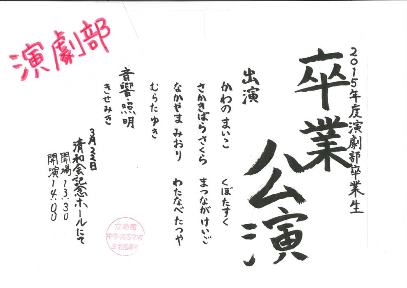 演劇部
2015年度演劇部卒業生
卒業
公演
出演
かわのまいこ　くぼたすく
さかきばらさくら　まつながけいご
なかやまみおり　わたなべたつや
むらたゆき
音響・照明
きせみき
3月23日
清和会記念ホールにて
開場13:30
開演14:00